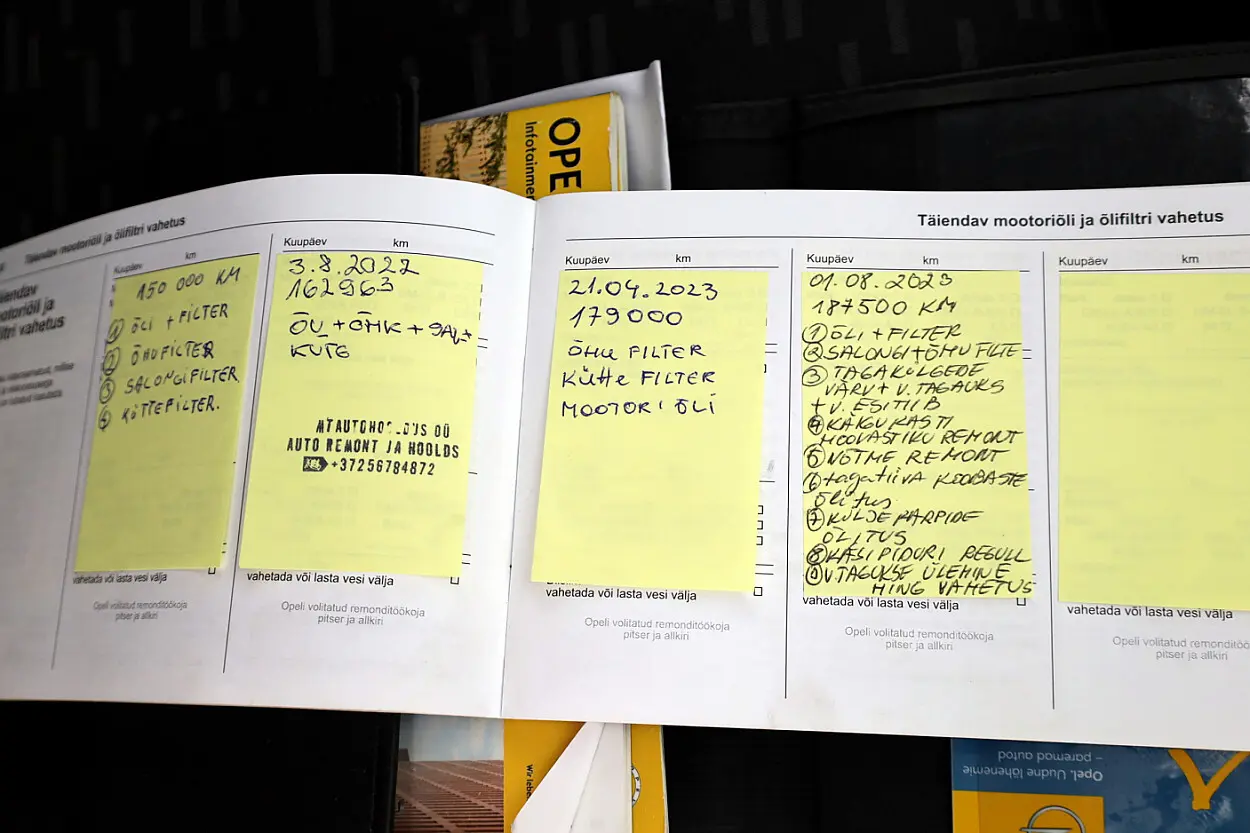 OPE
Infotainme
Täiendav mootoriõli ja õlifiltri vahetus
otoriõli ja
õlifiltri vahetus
Kuupäev
150 000 KM
① ÕLI + FILTER
② ÕHUFILTER
③ SALONGIFILTER
④ KÜTTEFILTER.
vahetada või lasta vesi välja
Opeli volitatud remonditöökoja
pitser ja allkiri
Kuupäev km
3.8.2022
162963
KUTE
AUTO REMONT JA HOOLDS
+37256784872
vahetada või lasta vesi välja
Opeli volitatud remonditöökoja
pitser ja allkiri
Täiendav mootoriõli ja õlifiltri vahetus
Kuupäev km
21.04.2023
179000
ÕHU FILTER
KÜtte FILTER
MOOTORI ÕLI
vahetada või lasta vesi välja
Opeli volitatud remonditöökoja
pitser ja allkiri
Kuupäev km
01.08.2023
187500 KM
① ÕLI + FILTER
② SALONGI+ÕHU FILTE
③ TAGAKÜLGEDE
VÄRV + V. TAGAUKS
+ V. ESITIIB
④ KÄIGUKASTI
HOOVASTIKU REMONT
⑤ VÕTME REMONT
⑥ tagatiiva KOOBASTE
õlitus
⑦ KÜLJEKARPIDE
ÕLITUS
⑧ KÄSIPIDURI REGULL
V.TAGUKSE ÜLEMINE
HING VAHETUS
vahetada või lasta vesi välja
Opeli volitatud remonditöökoja
pitser ja allkiri
Kuupäev km
vahetada või lasta vesi välja
Opeli volitatud remonditöökoja
pitser ja allkiri
Wir lebe
Opel. Uudne lähenemie
– paremad autod